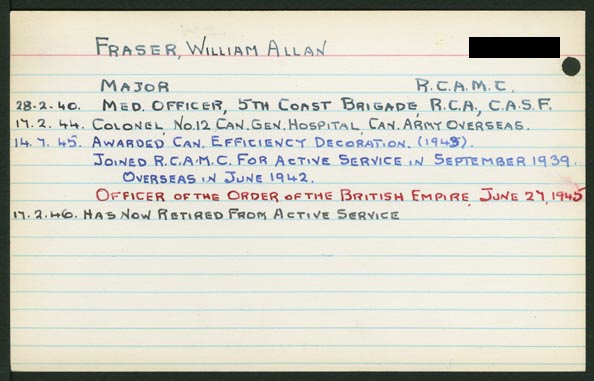 FRASER, WILLIAM ALLAN
MAJOR R.C.A.M.C.
28-2-40. MED. OFFICER, 5TH COAST BRIGADE, R.C.A., C.A.S.F.
17.2.44. COLONEL, NO.12 CAN. GEN. HOSPITAL, CAN. ARMY OVERSEAS.
14.7.45. AWARDED CAN. EFFICIENCY DECORATION. (1945).
JOINED R.C.A.M.C. FOR ACTIVE SERVICE IN SEPTEMBER 1939.
OVERSEAS IN JUNE 1942.
OFFICER OF THE ORDER OF THE BRITISH EMPIRE, JUNE 27, 1945
17.2.46. HAS NOW RETIRED FROM ACTIVE SERVICE